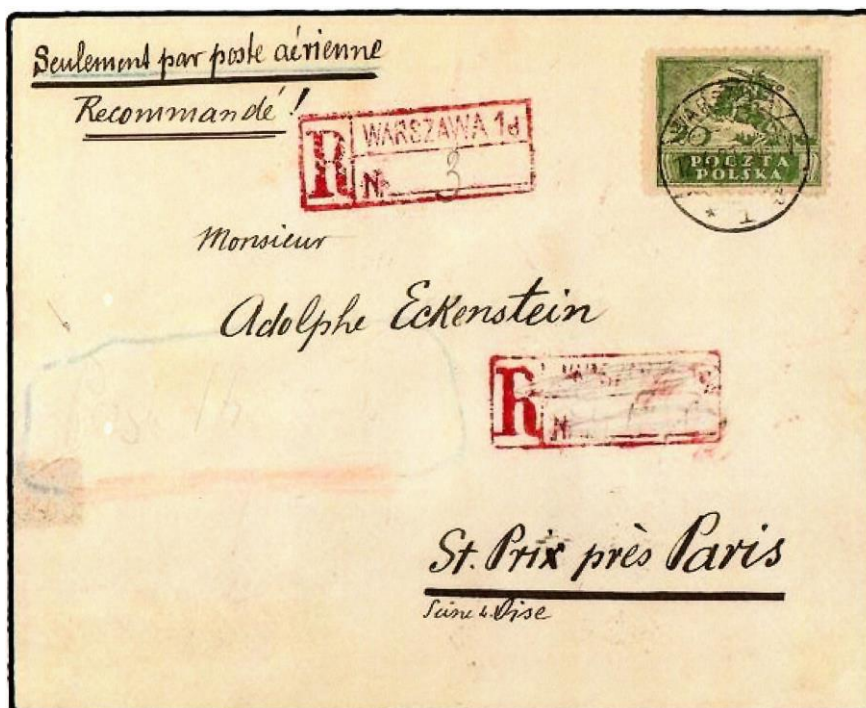 Seulement par poste aérienne
Recommandé !
R WARSZAWA 1d
N 3
WARSZAWA
POCZTA
POLSKA
Monsieur
Adolphe Eckenstein
R
N
St. Prix près Paris
Seine & Oise